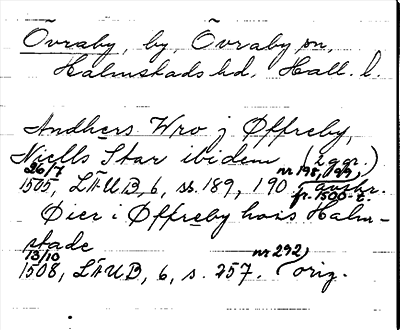 Övraby, by, Övraby sn,
Halmstads hd, Hall. l.
Andhers Wro j Øffreby,
Niells Star ibidem (2 ggr.)
26/7 nr 198, 199,
1505, LÄUB, 6, ss. 189, 190 avskr.
fr. 1500-t.
Øier i Øffreby hois Halm-
stade
13/10 nr 292,
1508, LÄUB, 6, s. 257. orig.